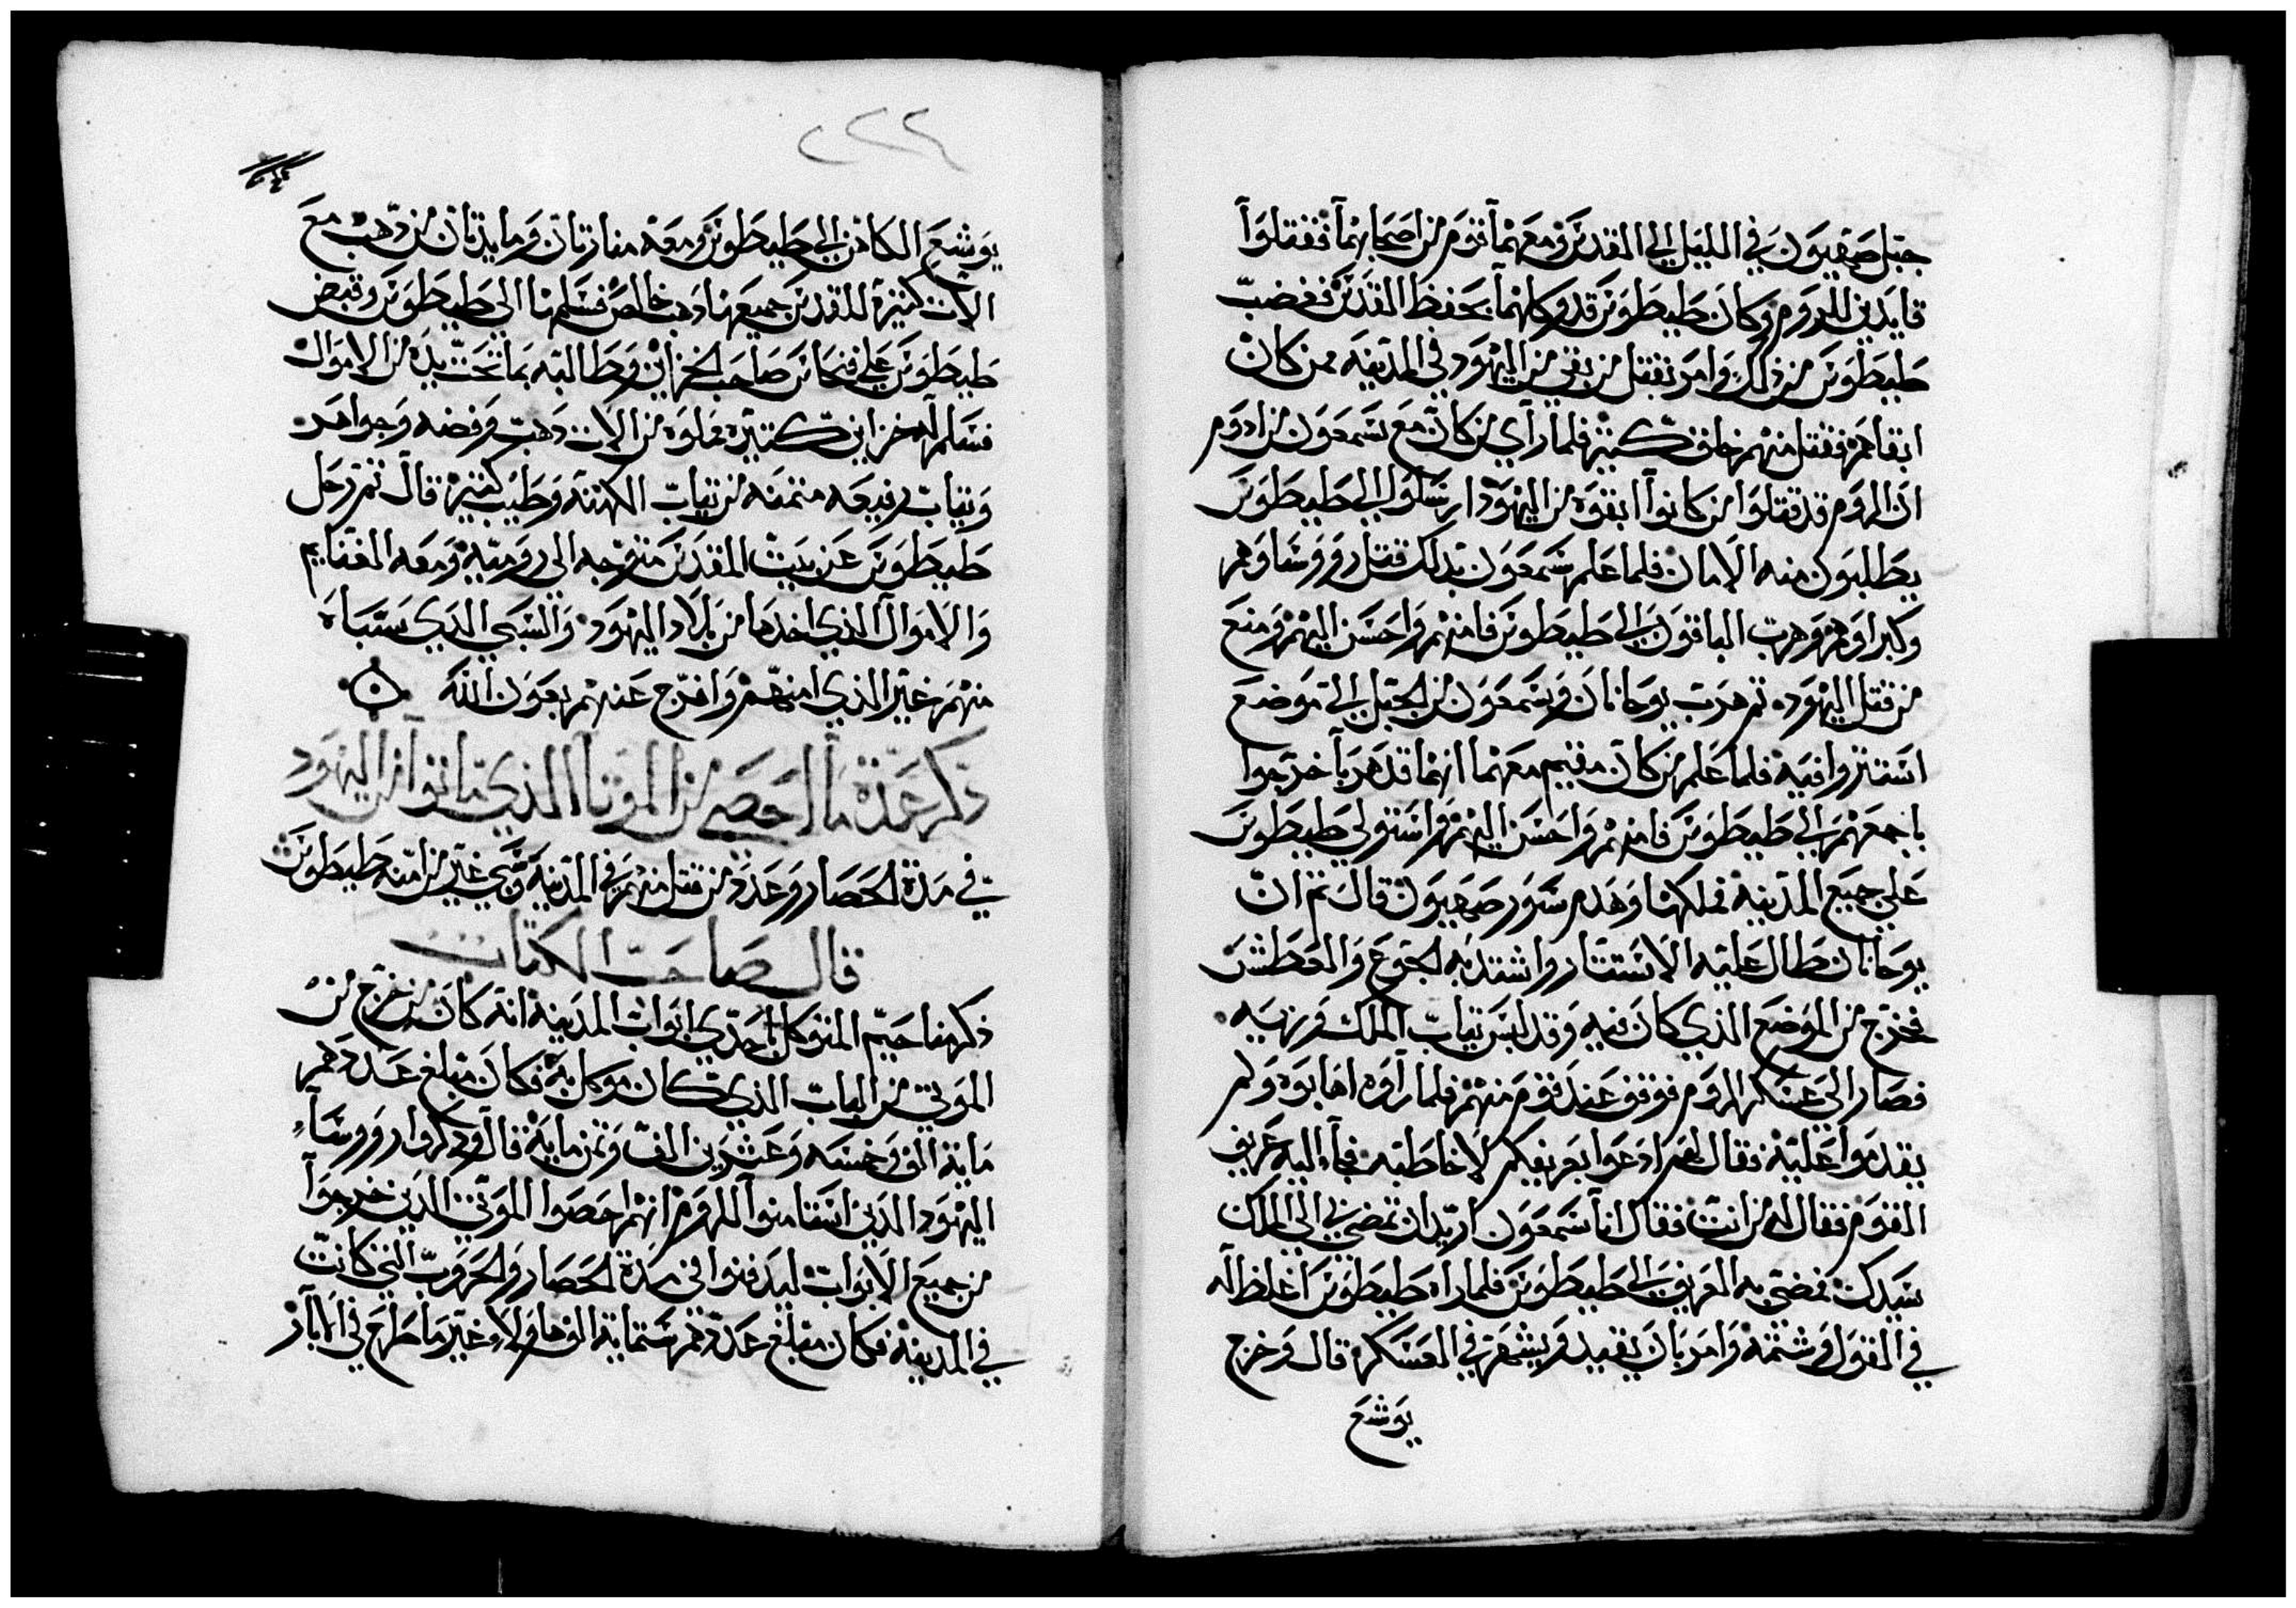 جبل صهيون في الليل الي القدس ومعهما قوم من اصحابهما فقتلوا
قايدين للروم وكان طيطوس قد وكلهما بحفظ القدس فغضب
طيطوس من ذلك وامر بقتل من بقي من اليهود في المدينه ممن كان
ابقاهم فقتل منهم خلق كثير فلما راي من كان مع شمعون من ادوم
ان الروم قد قتلوا من كانوا ابقوه من اليهود ارسلوا الي طيطوس
يطلبون منه الامان فلما علم شمعون بدلك قتل رووساوهم
وكبراوهم وهرب الباقون الي طيطوس فامنهم واحسن اليهم ومنع
من قتل اليهود ثم هرب يوحانان وشمعون من الجبل الي موضع
استتروا فيه فلما علم من كان مقيم معهما انهما قد هربا خرجوا
باجمعهم الي طيطوس فامنهم واحسن اليهم واستولي طيطوس
علي جميع المدينه فملكها وهدم سور صهيون قال ثم ان
يوحانان طال عليه الاستتار واشتد به الجوع والعطش
فخرج من الموضع الذي كان فيه وقد لبس ثياب الملك وزيه
فصار الي عسكر الروم فوقف عند قوم منهم فلما راوه اهابوه ولم
يقدموا عليه فقال لهم ادعوا بعريفكم لاخاطبه فجآ اليه عريف
القوم فقال له من انت فقال انا شمعون اريد ان تمضي بي الي الملك
سيدك فمضي به العريف الي طيطوس فلما راه طيطوس اغلظ له
في القول وشتمه وامر بان يقيد ويشهر في العسكر قال وخرج
يوشع
٢٢٢
يوشع الكاهن الي طيطوس ومعه منارتان ومايدتان من دهب مع
الات كثيره للقدس جميعها دهب خالص فسلمها الي طيطوس وقبض
طيطوس علي فنحاس صاحب الخزاين وطالبه بما تحت يده من الاموال
فسلم له خزاين كثيره مملوه من الات دهب وفضه وجواهر
وثياب رفيعه مثمنه من ثياب الكهنه وطيب كثير قال ثم رحل
طيطوس عن بيت المقدس متوجه الي روميه ومعه الغنايم
والاموال الذي اخدها من بلاد اليهود والسبي الذي سباه
منهم غير الذي امنهم وافرج عنهم بعون الله
ذكر عدة ما احصي من الموتا الذي ماتوا من اليهود
في مدة الحصار وعدد من قتل منهم في المدينه وسبي غير من امنه طيطوس
قال صاحب الكتاب
ذكر مناحيم المتوكل باحدي ابواب المدينه انه كان من خرج من
الموتي من الباب الذي كان موكل به فكان مبلغ عددهم
مايه الف وخمسه وعشرين الف وثمن مايه قال وذكروا رووسآ
اليهود الذين استامنوا للروم انهم احصوا الموتي الذين خرجوا
من جميع الابواب ليدفنوا في مدة الحصار والحروب التي كانت
في المدينه فكان مبلغ عددهم ستمايه الف هاولاء غير ما طرح في الابآر